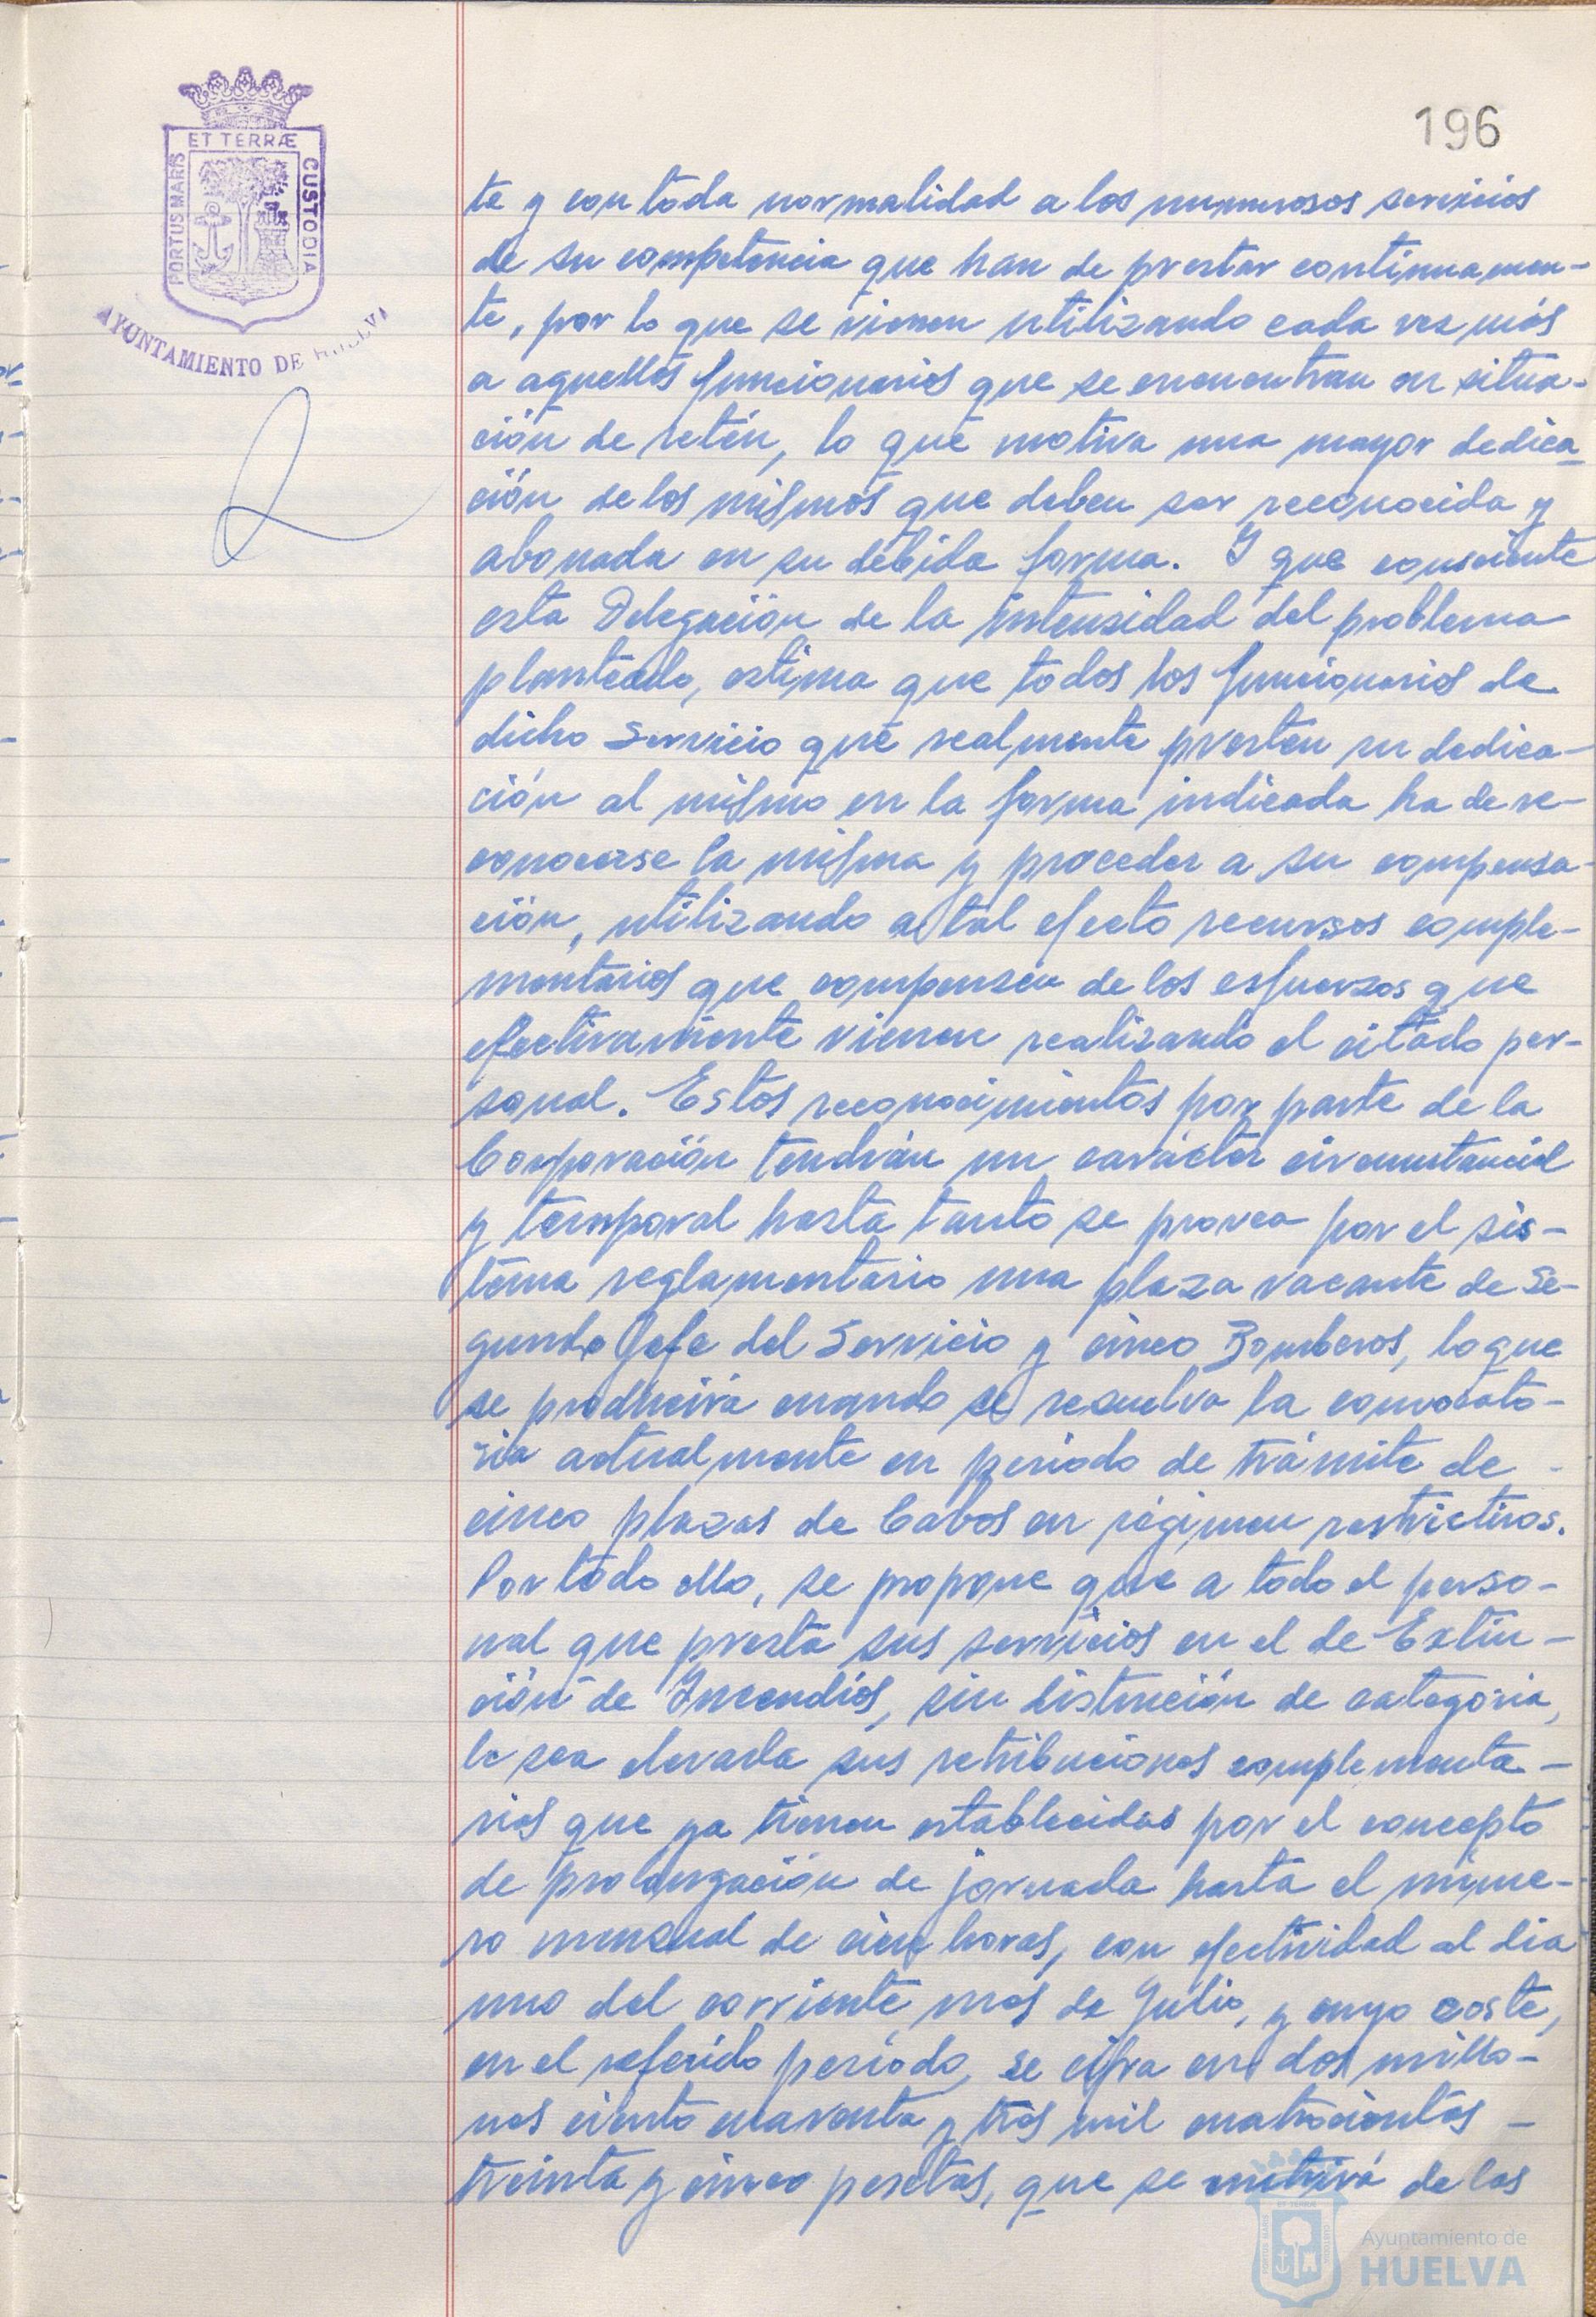 196
ET TERRÆ
PORTUS MARIS
CUSTODIA
AYUNTAMIENTO DE HUELVA
te y con toda normalidad a los numerosos servicios
de su competencia que han de prestar continuamen-
te, por lo que se vienen utilizando cada vez más
a aquellos funcionarios que se encuentran en situa-
ción de retén, lo que motiva una mayor dedica-
ción de los mismos que deben ser reconocida y
abonada en su debida forma. Y que consciente
esta Delegación de la intensidad del problema
planteado, estima que todos los funcionarios de
dicho Servicio que realmente presten su dedica-
ción al mismo en la forma indicada ha de re-
conocerse la misma y proceder a su compensa-
ción, utilizando a tal efecto recursos comple-
mentarios que compensen de los esfuerzos que
efectivamente vienen realizando el citado per-
sonal. Estos reconocimientos por parte de la
Corporación tendrán un carácter circunstancial
y temporal hasta tanto se provea por el sis-
tema reglamentario una plaza vacante de Se-
gundo Jefe del Servicio y cinco Bomberos, lo que
se producirá cuando se resuelva la convocato-
ria actualmente en periodo de trámite de -
cinco plazas de Cabos en régimen restrictivos.
Por todo ello, se propone que a todo el perso-
nal que presta sus servicios en el de Extin-
ción de Incendios, sin distinción de categoría,
le sea elevada sus retribuciones complementa-
rias que ya tienen establecidas por el concepto
de prolongación de jornada hasta el núme-
ro mensual de cien horas, con efectividad al dia
uno del corriente mes de Julio, y cuyo coste,
en el referido período, se cifra en dos millo-
nes ciento cuarenta y tres mil cuatrocientas -
treinta y cinco pesetas, que se nutrirá de las
Ayuntamiento de
HUELVA